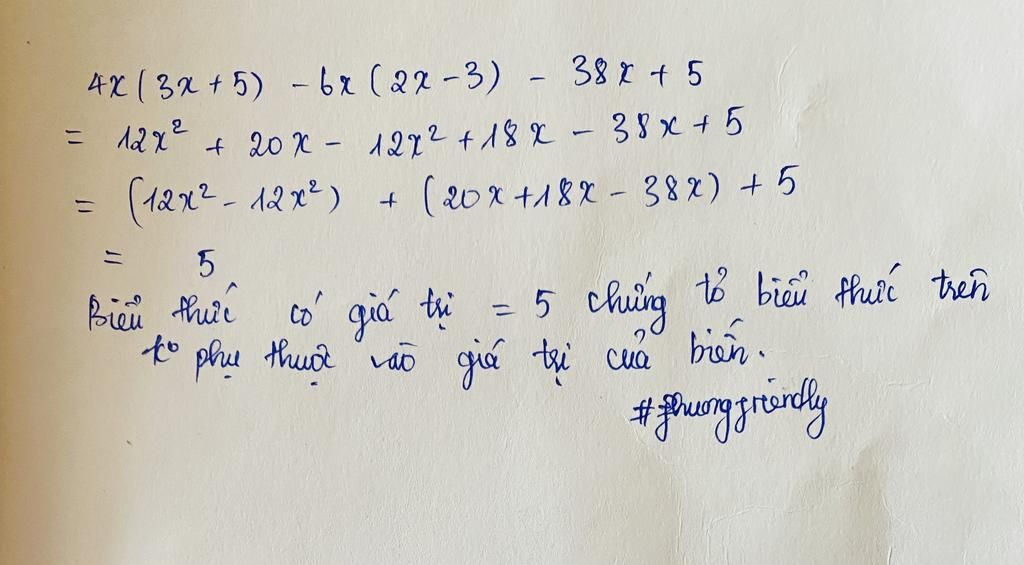 4x(3x+5) - 6x(2x-3) - 38x + 5
= 12x² + 20x - 12x² + 18x - 38x + 5
= (12x² - 12x²) + (20x + 18x - 38x) + 5
= 5
Biểu thức có giá trị = 5 chứng tỏ biểu thức trên
k° phụ thuộc vào giá trị của biến.
#phuongfriendly